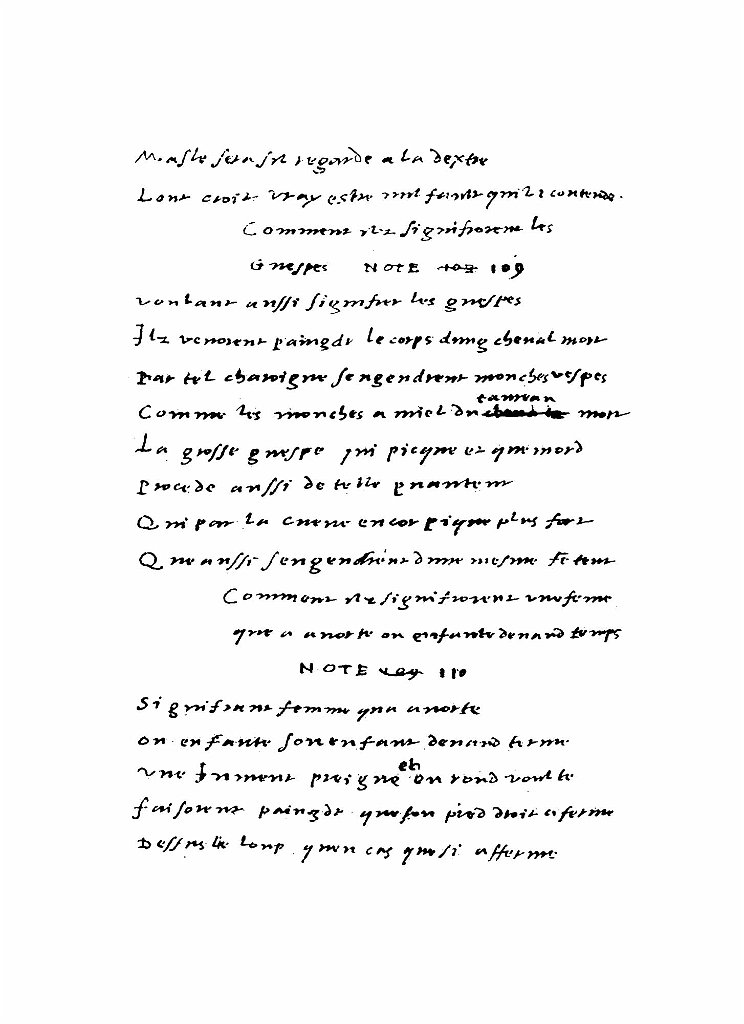 Masle sera sil regarde a la dextre
Lont croit vray estre nul faute quil i contende.
Comment ilz signifioient les
Guespes NOTE 108 109
voulant aussi signifier les guespes
Ilz venoient paingdr le corps dung cheual mort
Par tel charoigne sengendrent mouches vespes
Comme les mouches a miel du taureau mort
La grosse guespe qui picque et que mord
Procede aussi de telle puanteur
Qui par la cueue encor pique plus fort
Que aussi sengendrent dune mesme feteur
Comment ilz signifioient vne feme
que a auorte ou enfante deuand temps
NOTE 109 110
Signifiant femme qua auorte
ou enfante son enfant deuand terme
vne Jument preigne en rond voulte
faisoient paingdr que son pied droit a ferme
Dessus le loup quen cas que si afferme